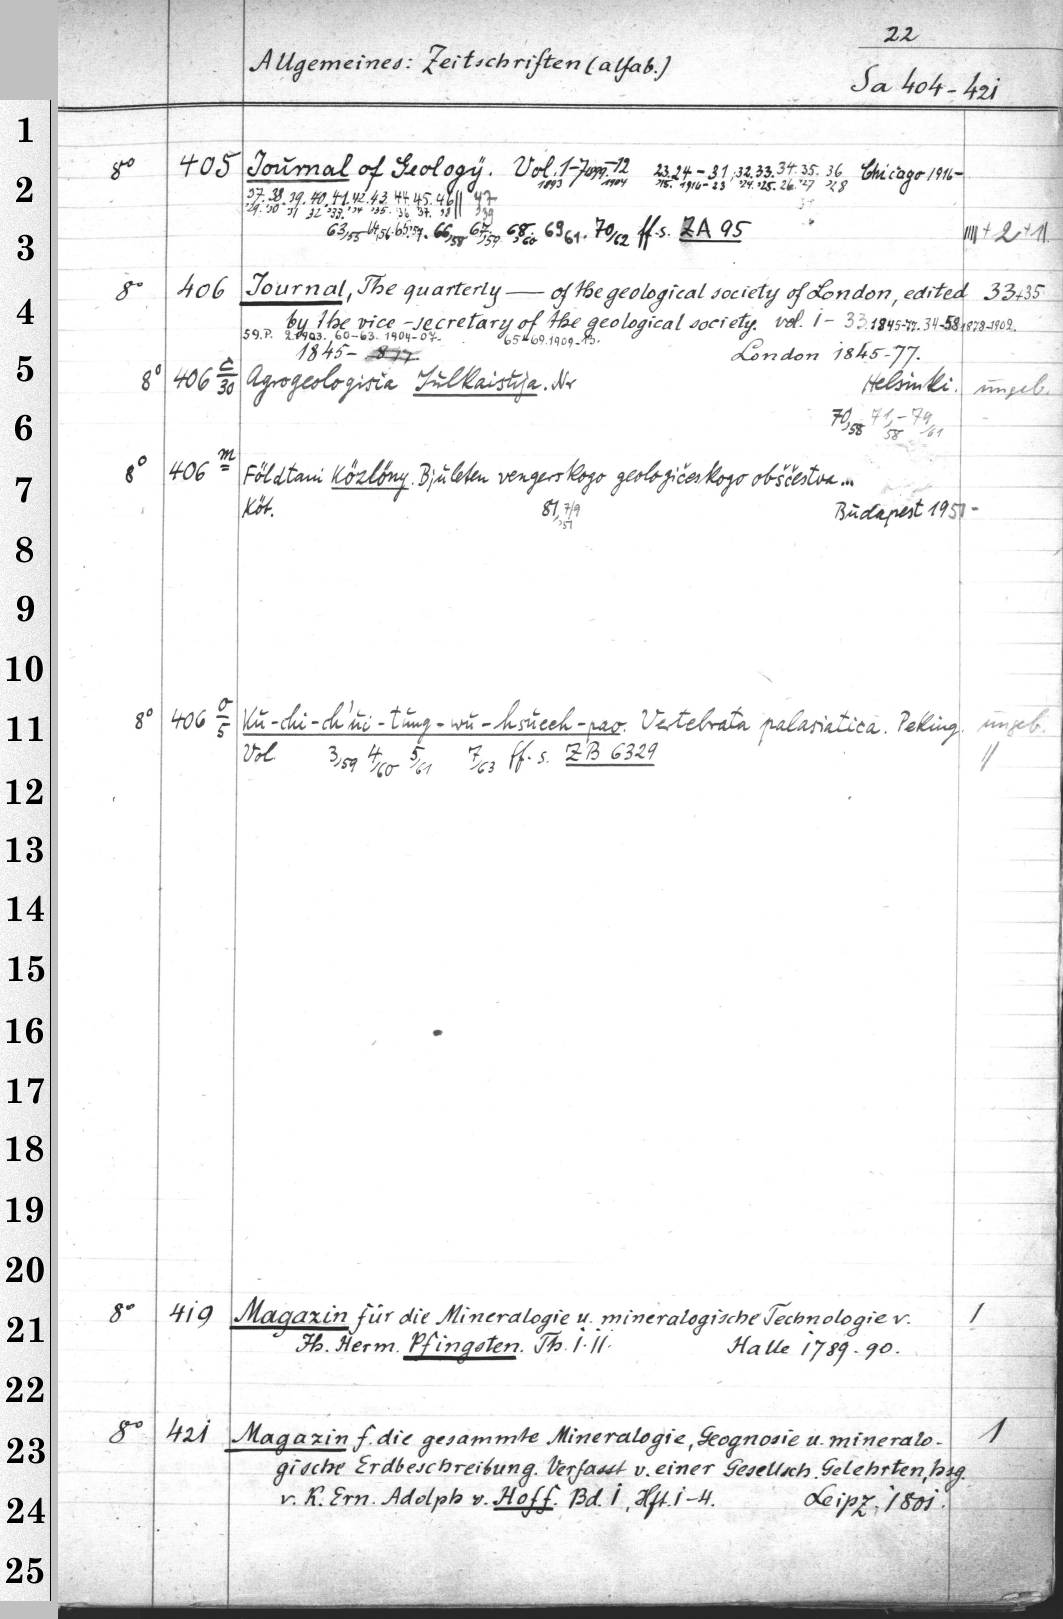 22
Allgemeines: Zeitschriften (alfab.)
Sa 404-421
8° 405 Journal of Geology. Vol. 1-7 -12 23.24-31.32.33.34.35.36 Chicago 1916-
1893 1904 '15. 1916-23 '24. '25. 26. '27 '28
37. 38. 39. 40. 41. 42. 43. 44. 45. 46 || 47
'29. '30 '31 '32 '33. '34 '35. '36 '37. '38 '39
63/55 64/56. 65/57. 66/58 67/59 68/60 69/61. 70/62 ff. s. ZA 95 + 2 + 11
8° 406 Journal, The quarterly — of the geological society of London, edited 33+35
by the vice-secretary of the geological society. vol. 1-33. 1845-77. 34-58 1878-1902.
59.P. 2. 1903. 60-63. 1904-07. 65-69. 1909-13.
1845- 877 London 1845-77.
8° 406 c/30 Agrogeologisia Julkaisuja. Nr Helsinki. ungeb.
70/58 71/58 - 79/61
8° 406 m Földtani Közlöny. Bjuleten vengerskogo geologičeskogo obščestva ...
Köt. 81, 7/9 '51 Budapest 1951-
8° 406 o/5 Ku-chi-ch'ui-tung-wu-hsüeh-pao. Vertebrata palasiatica. Peking. ungeb.
Vol. 3/59 4/60 5/61 7/63 ff. s. ZB 6329 //
8° 419 Magazin für die Mineralogie u. mineralogische Technologie v. 1
Jh. Herm. Pfingsten. Th. I. II. Halle 1789-90.
8° 421 Magazin f. die gesammte Mineralogie, Geognosie u. mineralo- 1
gische Erdbeschreibung. Verfasst v. einer Gesellsch. Gelehrten, hsg.
v. K. Ern. Adolph v. Hoff. Bd. I, Hft. 1-4. Leipz. 1801.
1
2
3
4
5
6
7
8
9
10
11
12
13
14
15
16
17
18
19
20
21
22
23
24
25